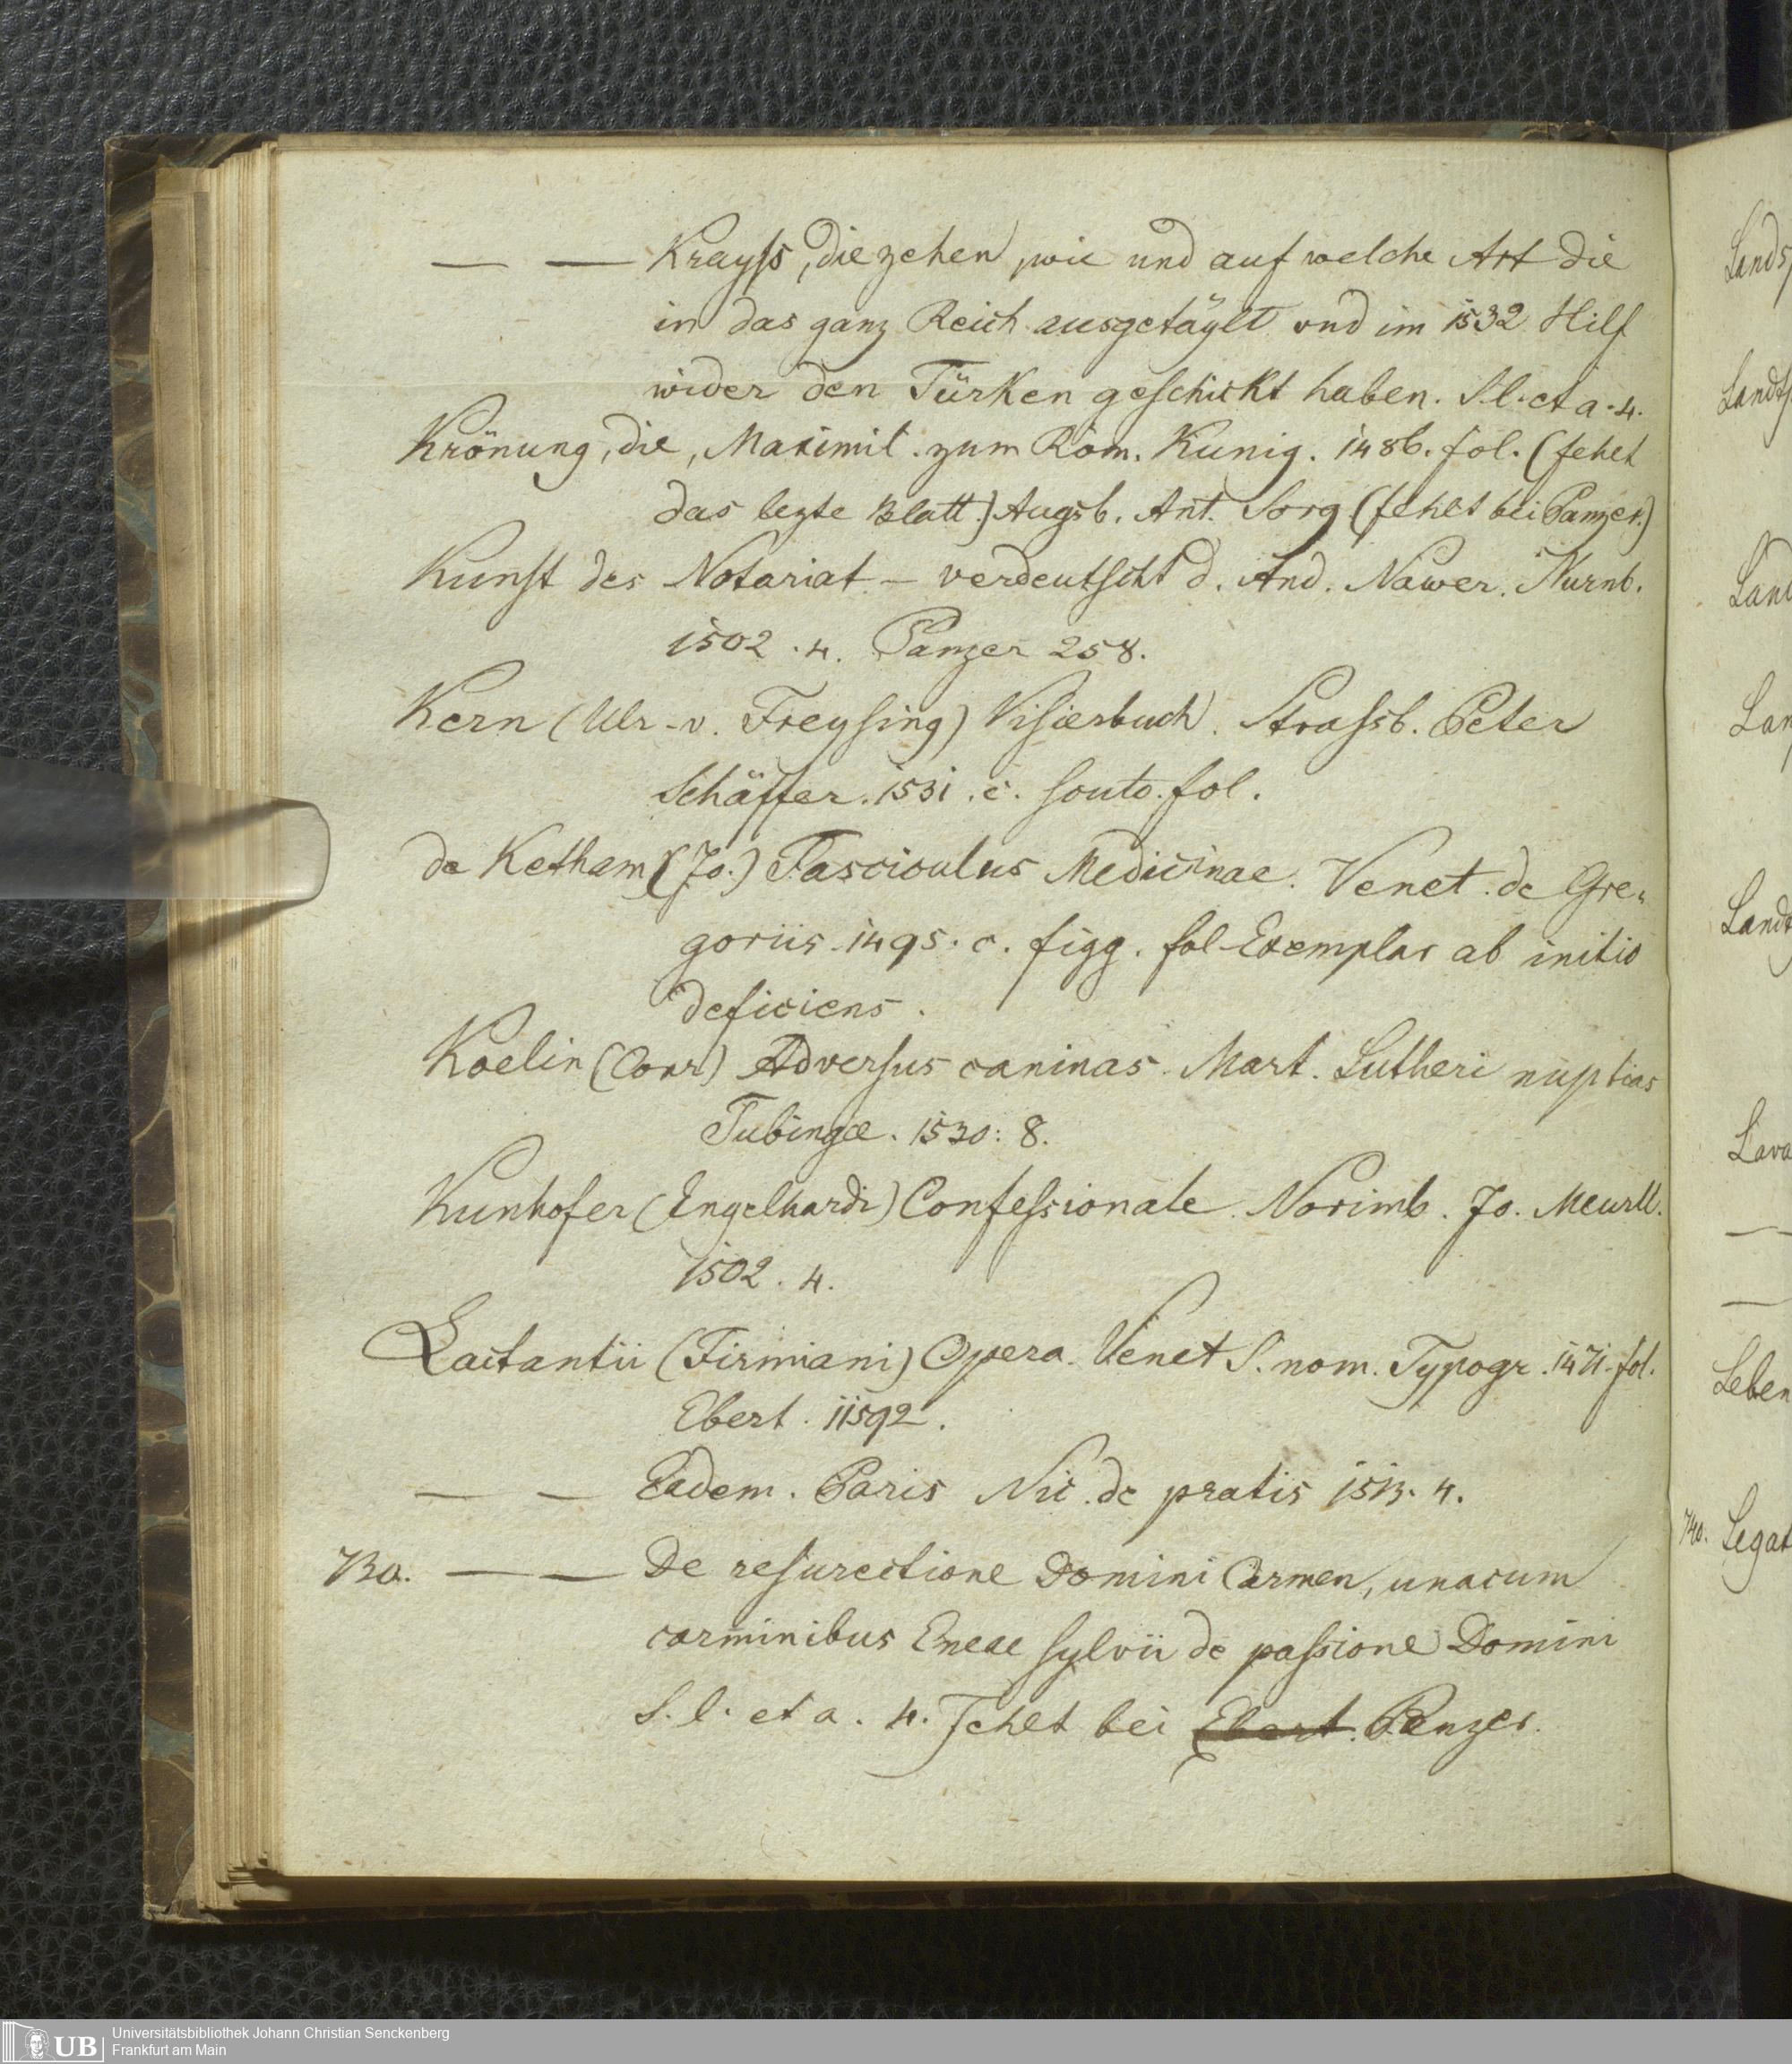 — — Krayſs, die zehen, wie und auf welche Art die
in das ganz Reich ausgetäylt und im 1532 Hilf
wider den Türken geſchickt haben. S. l. et a. 4.
Krönung, die, Maximil. zum Röm. Kunig. 1486. fol. (fehlt
das lezte Blatt.) Augsb. Ant. Sorg (fehlt bei Panzer.)
Kunſt des Notariat — verdeutſcht d. And. Nawer. Nurnb.
1502. 4. Panzer 258.
Kern (Ulr. v. Freyſing) Viſierbuch. Straſsb. Peter
Schäffer. 1531. c. fol.
de Ketham (Jo.) Fasciculus Medicinae. Venet. de Gre-
goriis. 1495. c. figg. fol. Exemplar ab initio
deficiens.
Koelin (Conr) Adverſus caninas Mart. Lutheri nuptias
Tubingæ. 1530. 8.
Kunhofer (Engelhardi) Confeſsionale. Norimb. Jo. Meurll.
1502. 4.
Lactantii (Firmiani) Opera. Venet S. nom. Typogr. 1471. fol.
Ebert. 11592.
— — Eadem. Paris Nic. de pratis 1513. 4.
730. — — De reſurectione Domini Carmen, unacum
carminibus Eneae ſylvii de paſsione Domini
S. l. et a. 4. Fehlt bei Ebert. Panzer.
Lands
Landſ
Land
Lan
Land
Lava
—
—
Leben
740. Legat
UB
Universitätsbibliothek Johann Christian Senckenberg
Frankfurt am Main